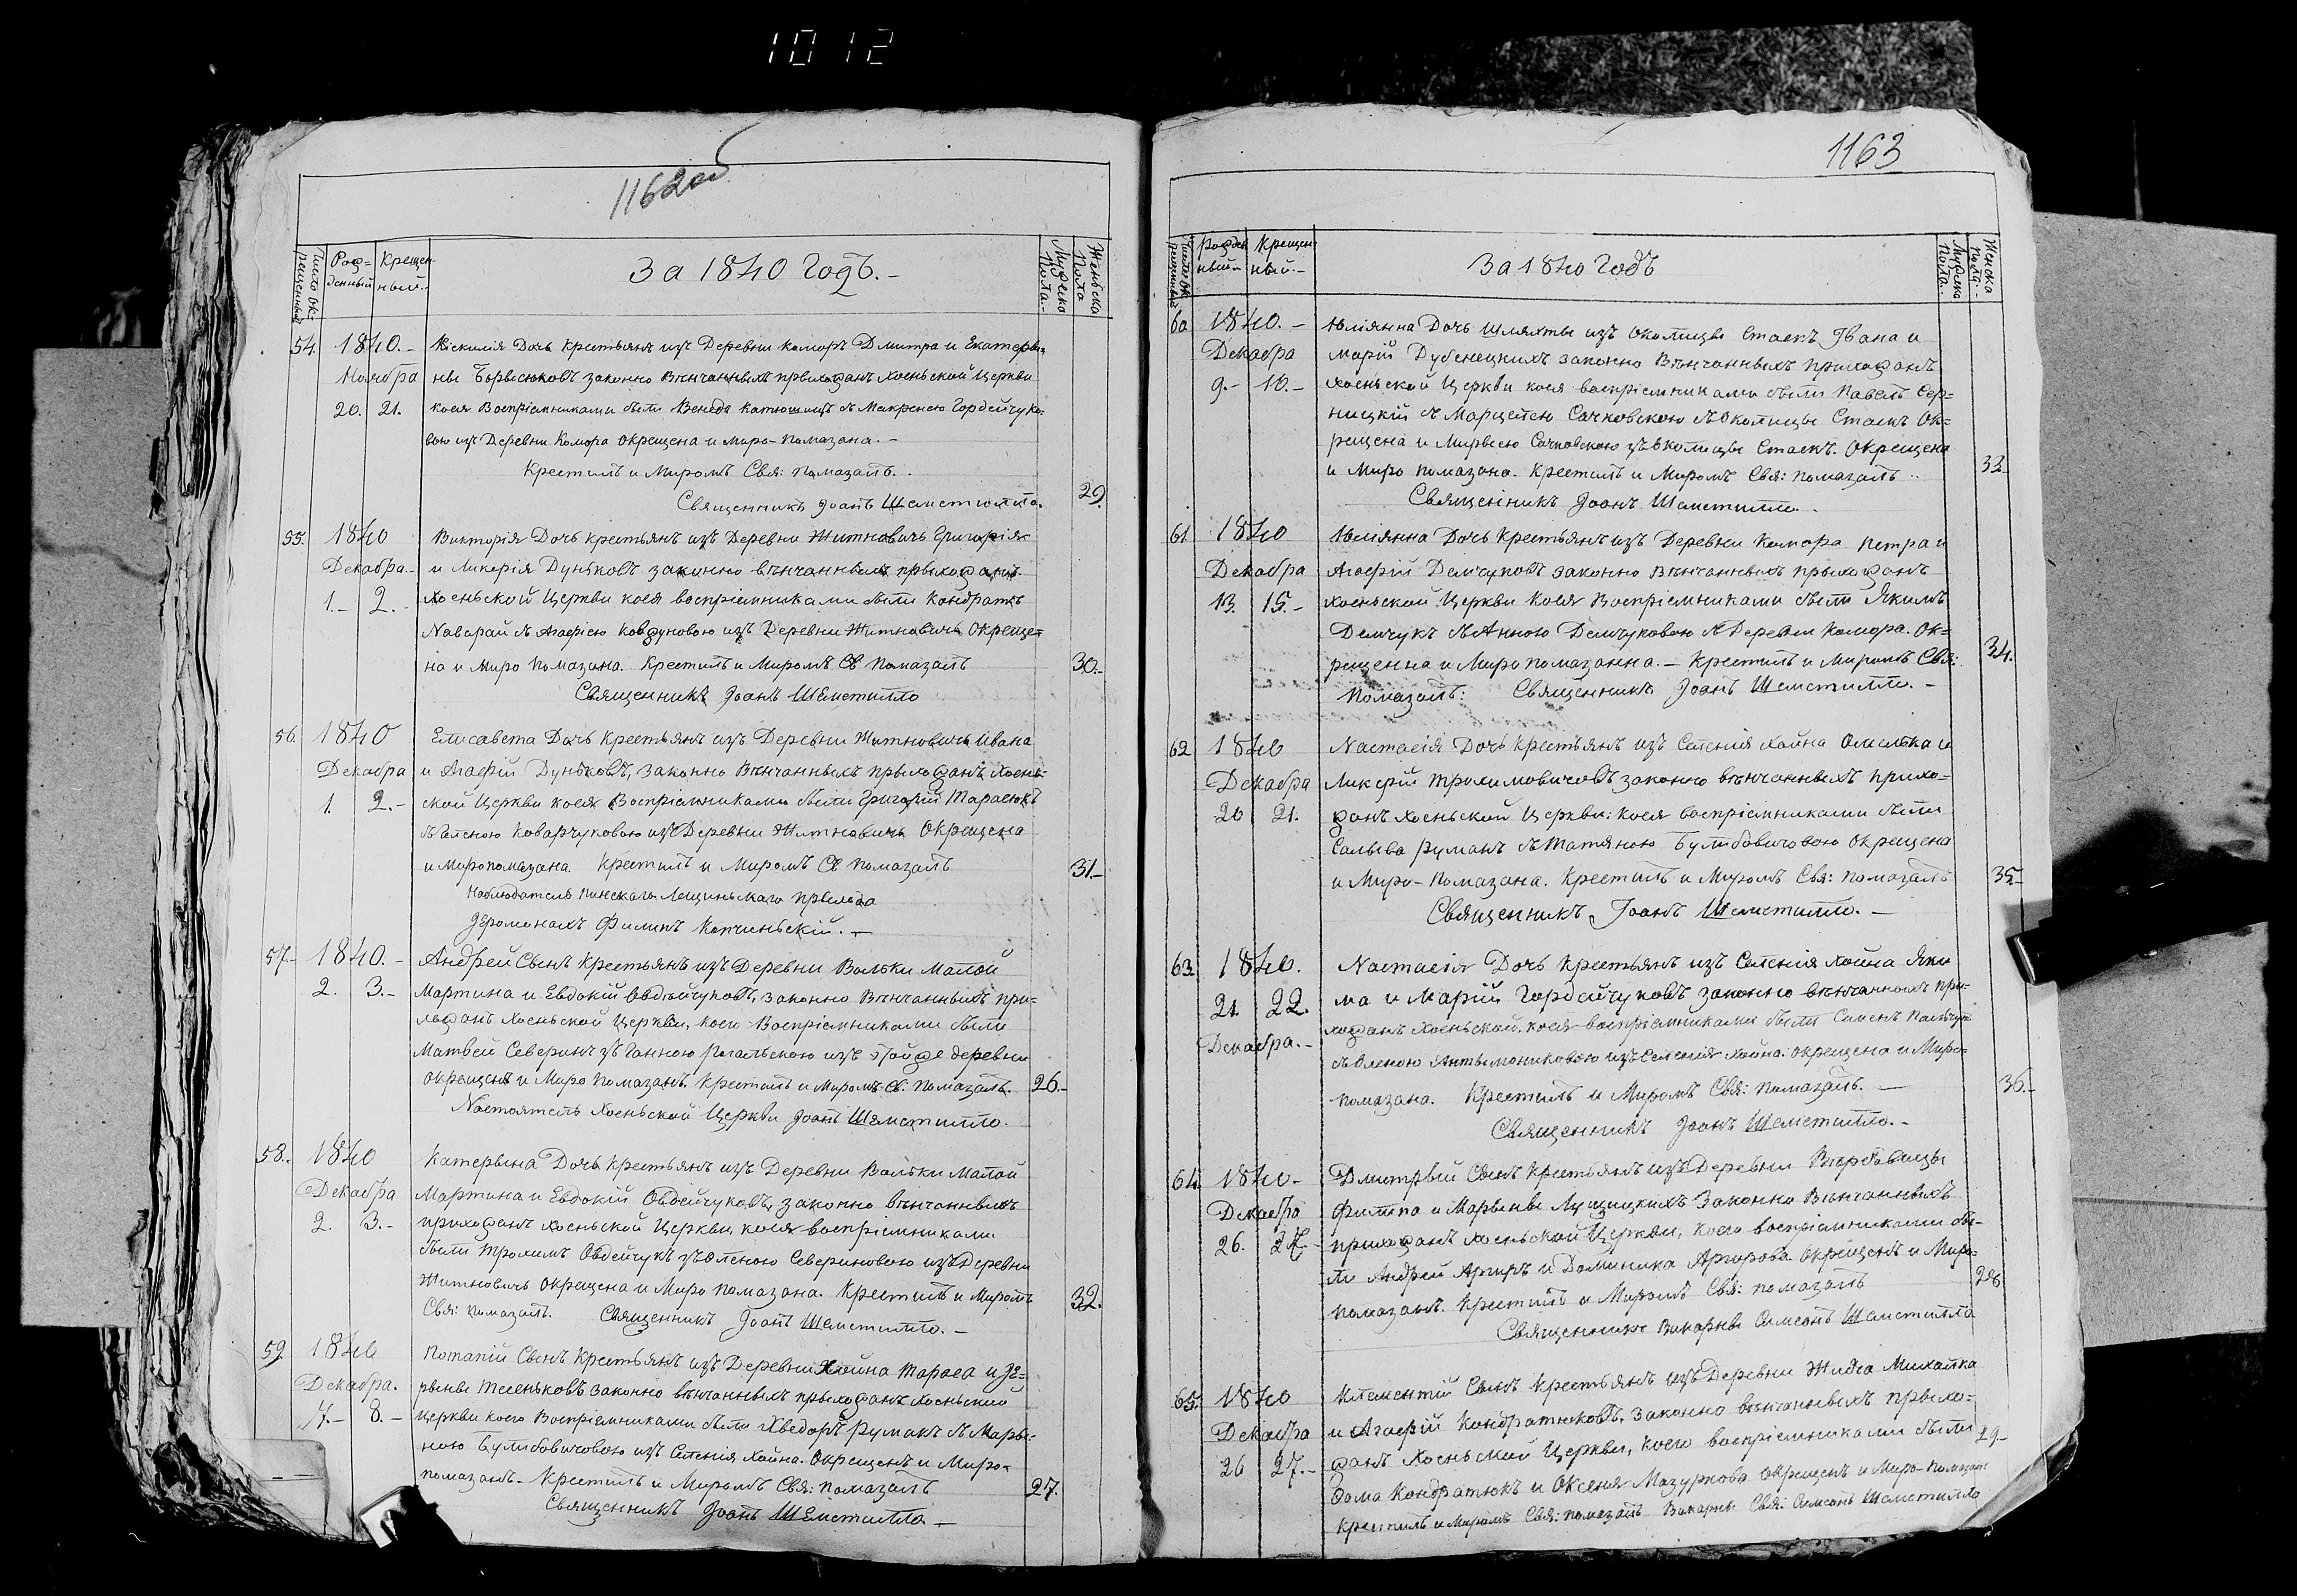 1012
1162 об
Число ок-
рещенный
Рож=
денный
Крещен-
ный.-
За 1840 Годъ.-
Мужско
Пола.-
Женьско
Пола
54. 1840.- Дочь Крестьянъ изъ Деревни Коморъ Дмитра и Екатеры-
Ноября ны Борысюковъ законно Вѣнчанныхъ прыхожанъ Хоеньской Церкви
20. 21. коея Воспріемниками были Катюшицъ съ Макреною Гордейчуко-
вою изъ Деревни Комора окрещена и миро-помазана.-
Крестилъ и Миромъ Свя: помазалъ.
Священникъ Іоанъ Шеметилло. 29.
55. 1840 Викторія Дочь крестьянъ изъ Деревни Житновичъ Григорія
Декабра.- и Ликерія Дуньковъ законно вѣнчанныхъ прыхожанъ
1.- 2.- Хоеньской Церкви коея воспріемниками были Кондратъ
Наварай съ Агафіею Ковзуновою изъ Деревни Житновичъ Окреще=
на и миро помазана. Крестилъ и Миромъ Св помазалъ 30.-
Священникъ Іоанъ Шеметилло
56. 1840 Елисавета Дочь крестьянъ изъ Деревни Житновичъ Ивана
Декабра и Агафіи Дуньковъ, законно Вѣнчанныхъ прыхожанъ Хоень-
1. 2.- ской Церкви коея Воспріемниками были Григорій Тарасюкъ
съ Коварчуковою изъ Деревни Житновичъ Окрещена
и миропомазана. Крестилъ и Миромъ Св помазалъ 31.-
Наблюдатель Пинскаго Лещиньскаго
Іеромонахъ Филипъ Копчиньскій.-
57.- 1840.- Андрей Сынъ Крестьянъ изъ Деревни Вольки Малой
2. 3.- Мартина и Евдокіи Овдѣйчуковъ, законно Вѣнчанныхъ при-
хожанъ Хоеньской Церкви, коего Воспріемниками были
Матвей Северинъ зъ Ганною Рогальскою изъ Тойже деревни
окрещенъ и Миро помазанъ. Крестилъ и Миромъ Св: помазалъ. 26.-
Настоятель Хоеньской Церкви Іоанъ Шеметилло.
58. 1840 Катерына Дочь крестьянъ изъ Деревни Вольки Малой
Декабра Мартина и Евдокіи Овдейчуковъ, законно вѣнчанныхъ
2. 3.- прихожанъ Хоеньской Церкви, коея воспріемниками
были Трохимъ Овдейчукъ зъ Оленою Севериновою изъ Деревни
Житновичъ окрещена и Миро помазана. Крестилъ и Миромъ 32.
Свя: помазалъ. Священникъ Іоанъ Шеметилло.-
59. 1840 Потапій Сынъ Крестьянъ изъ Деревни Хойна Тараса и Іе=
Декабра. рыны законно вѣнчанныхъ прыхожанъ Хоеньский
7.- 8.- церкви коего Воспріемниками были Хведоръ Румакъ съ Мары-
ною Булибовичовою изъ Селенія Хойна. Окрещенъ и Миро-
помазанъ.- Крестилъ и Миромъ Свя: помазалъ 27.
Священникъ Іоанъ Шеметилло.-
1163
Число ок-
рещенный
Рожден
ный-
Крещен-
ный.-
За 1840 Годъ
Мужска
Пола.
Женска
Пола.-
60 1840.- Юліянна Дочь шляхты изъ околицы Стаекъ Івана и
Декабра Маріи Дубенецкихъ законно Вѣнчанныхъ прихожанъ
9.- 10.- Хоеньской Церкви коея воспріемниками были Павелъ Сер=
ницкій съ Марцелею Сачковскою съ Околицы Стаекъ Ок=
рещена и Мирысею Сачковскою зъ Околицы Стаекъ. Окрещена
и Миро помазана. Крестилъ и Миромъ Свя: помазалъ.. 33-
Священникъ Іоанъ Шеметилло.
61 1840 Юліянна Дочь Крестьянъ изъ Деревни Комора Петра и
Декабра Агафіи Демчуковъ законно Вѣнчанныхъ прыхожанъ
13. 15.- Хоеньской Церкви Коея Воспріемниками были Якимъ
Демчукъ съ Анною Демчуковою съ Деревни Комора. Ок=
рещенна и Миропомазанна.- Крестилъ и Миромъ Свя: 34.
помазалъ: Священникъ Іоанъ Шеметилло.-
62 1840 Настасія Дочь Крестьянъ изъ Селенія Хойна Омелька и
Декабра Ликеріи Трохимовичовъ законно вѣнчанныхъ прихо-
20 21. жанъ Хоеньской Церкви: коея воспріемниками были
Румакъ съ Татяною Булибовичовою Окрещена
и Миро-Помазана. Крестилъ и Миромъ Свя: помазалъ 35.-
Священникъ Іоанъ Шеметилло.-
63. 1840. Настасія Дочь Крестьянъ изъ Селенія Хойна Яки
21. 22. ма и Маріи Гордейчуковъ законно вѣнчанныхъ при-
Декабра.- хожанъ Хоеньской. коея воспріемниками были Сименъ
съ Оленою изъ Селенія Хойна: окрещена и Миро-
помазана. Крестилъ и Миромъ Свя: помазалъ.- 36.-
Священникъ Іоанъ Шеметилло.-
64. 1840- Дмитрый Сынъ Крестьянъ изъ Деревни
Декабра Филипа и Марыны Лущицкихъ Законно Вѣнчанныхъ
26. 27- прихожанъ Хоеньской Церкви, коего воспріемниками бы-
ли Андрей и Доминика Окрещенъ и Миро-
помазанъ. Крестилъ и Миромъ Свя: помазалъ 28
Священникъ Викарны Симеонъ Шеметилло
65. 1840 Климентій Сынъ Крестьянъ изъ Деревни Михалка
Декабра и Агафіи Кондратюковъ, законно вѣнчанныхъ прыхо-
26 27.- жанъ Хоеньской Церкви, коего воспріемниками были 29-
Фома Кондратюкъ и Оксеня Мазуркова окрещенъ и Миро-помазанъ
Крестилъ и Миромъ Свя: помазалъ Викарны Свя: Симеонъ Шеметилло